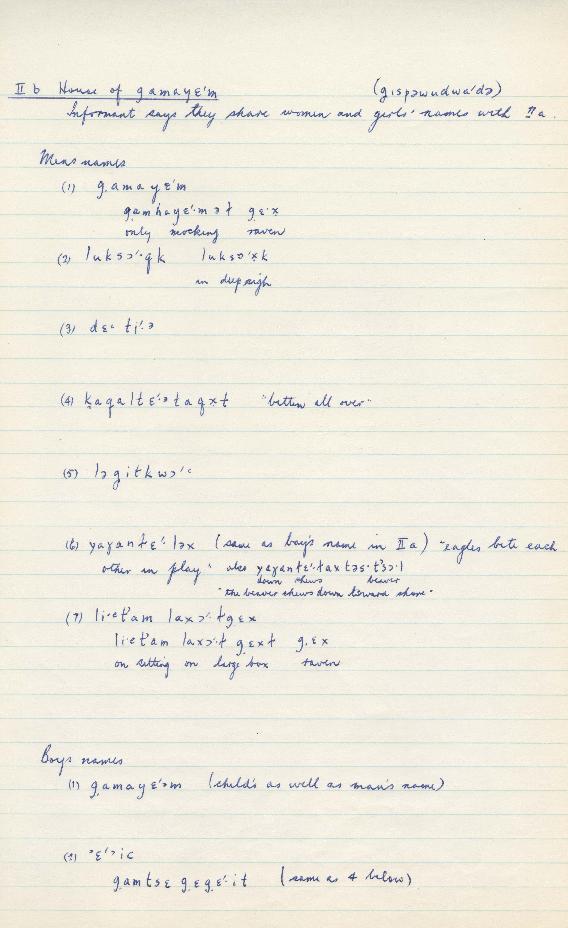 II b House of g̣amayɛ'm (gıspəwudwa'də)
Informant says they share women and girls' names with II a.
Mens names
(1) g̣amayɛ'm
g̣amhayɛ'·məɫ g̣ɛ·x
only mocking raven
(2) luksɔ'·qk luksɔ'·x̣k
in deep sigh
(3)
(4) ḳaqaltɛ'·ɔtaqxt "bitten all over"
(5) ləgitkwɔ'·c
(6) yaɣanɫɛ'·lǝx (same as boy's name in II a) "eagles bite each
other in play" also yaɣanɫɛ'·ɫax
down chews beaver
"the beaver chews down toward shore"
(7) li·et'am laxɔ'·ɫgɛx
li·et'am laxɔ'·ɫ g̣ɛxɫ g̣.ɛx
on sitting on large box raven
Boys names
(1) g̣amayɛ'ɔm (child's as well as man's name)
(2)
g̣amtsɛ g̣ɛg̣ɛ'·it (same as 4 below)